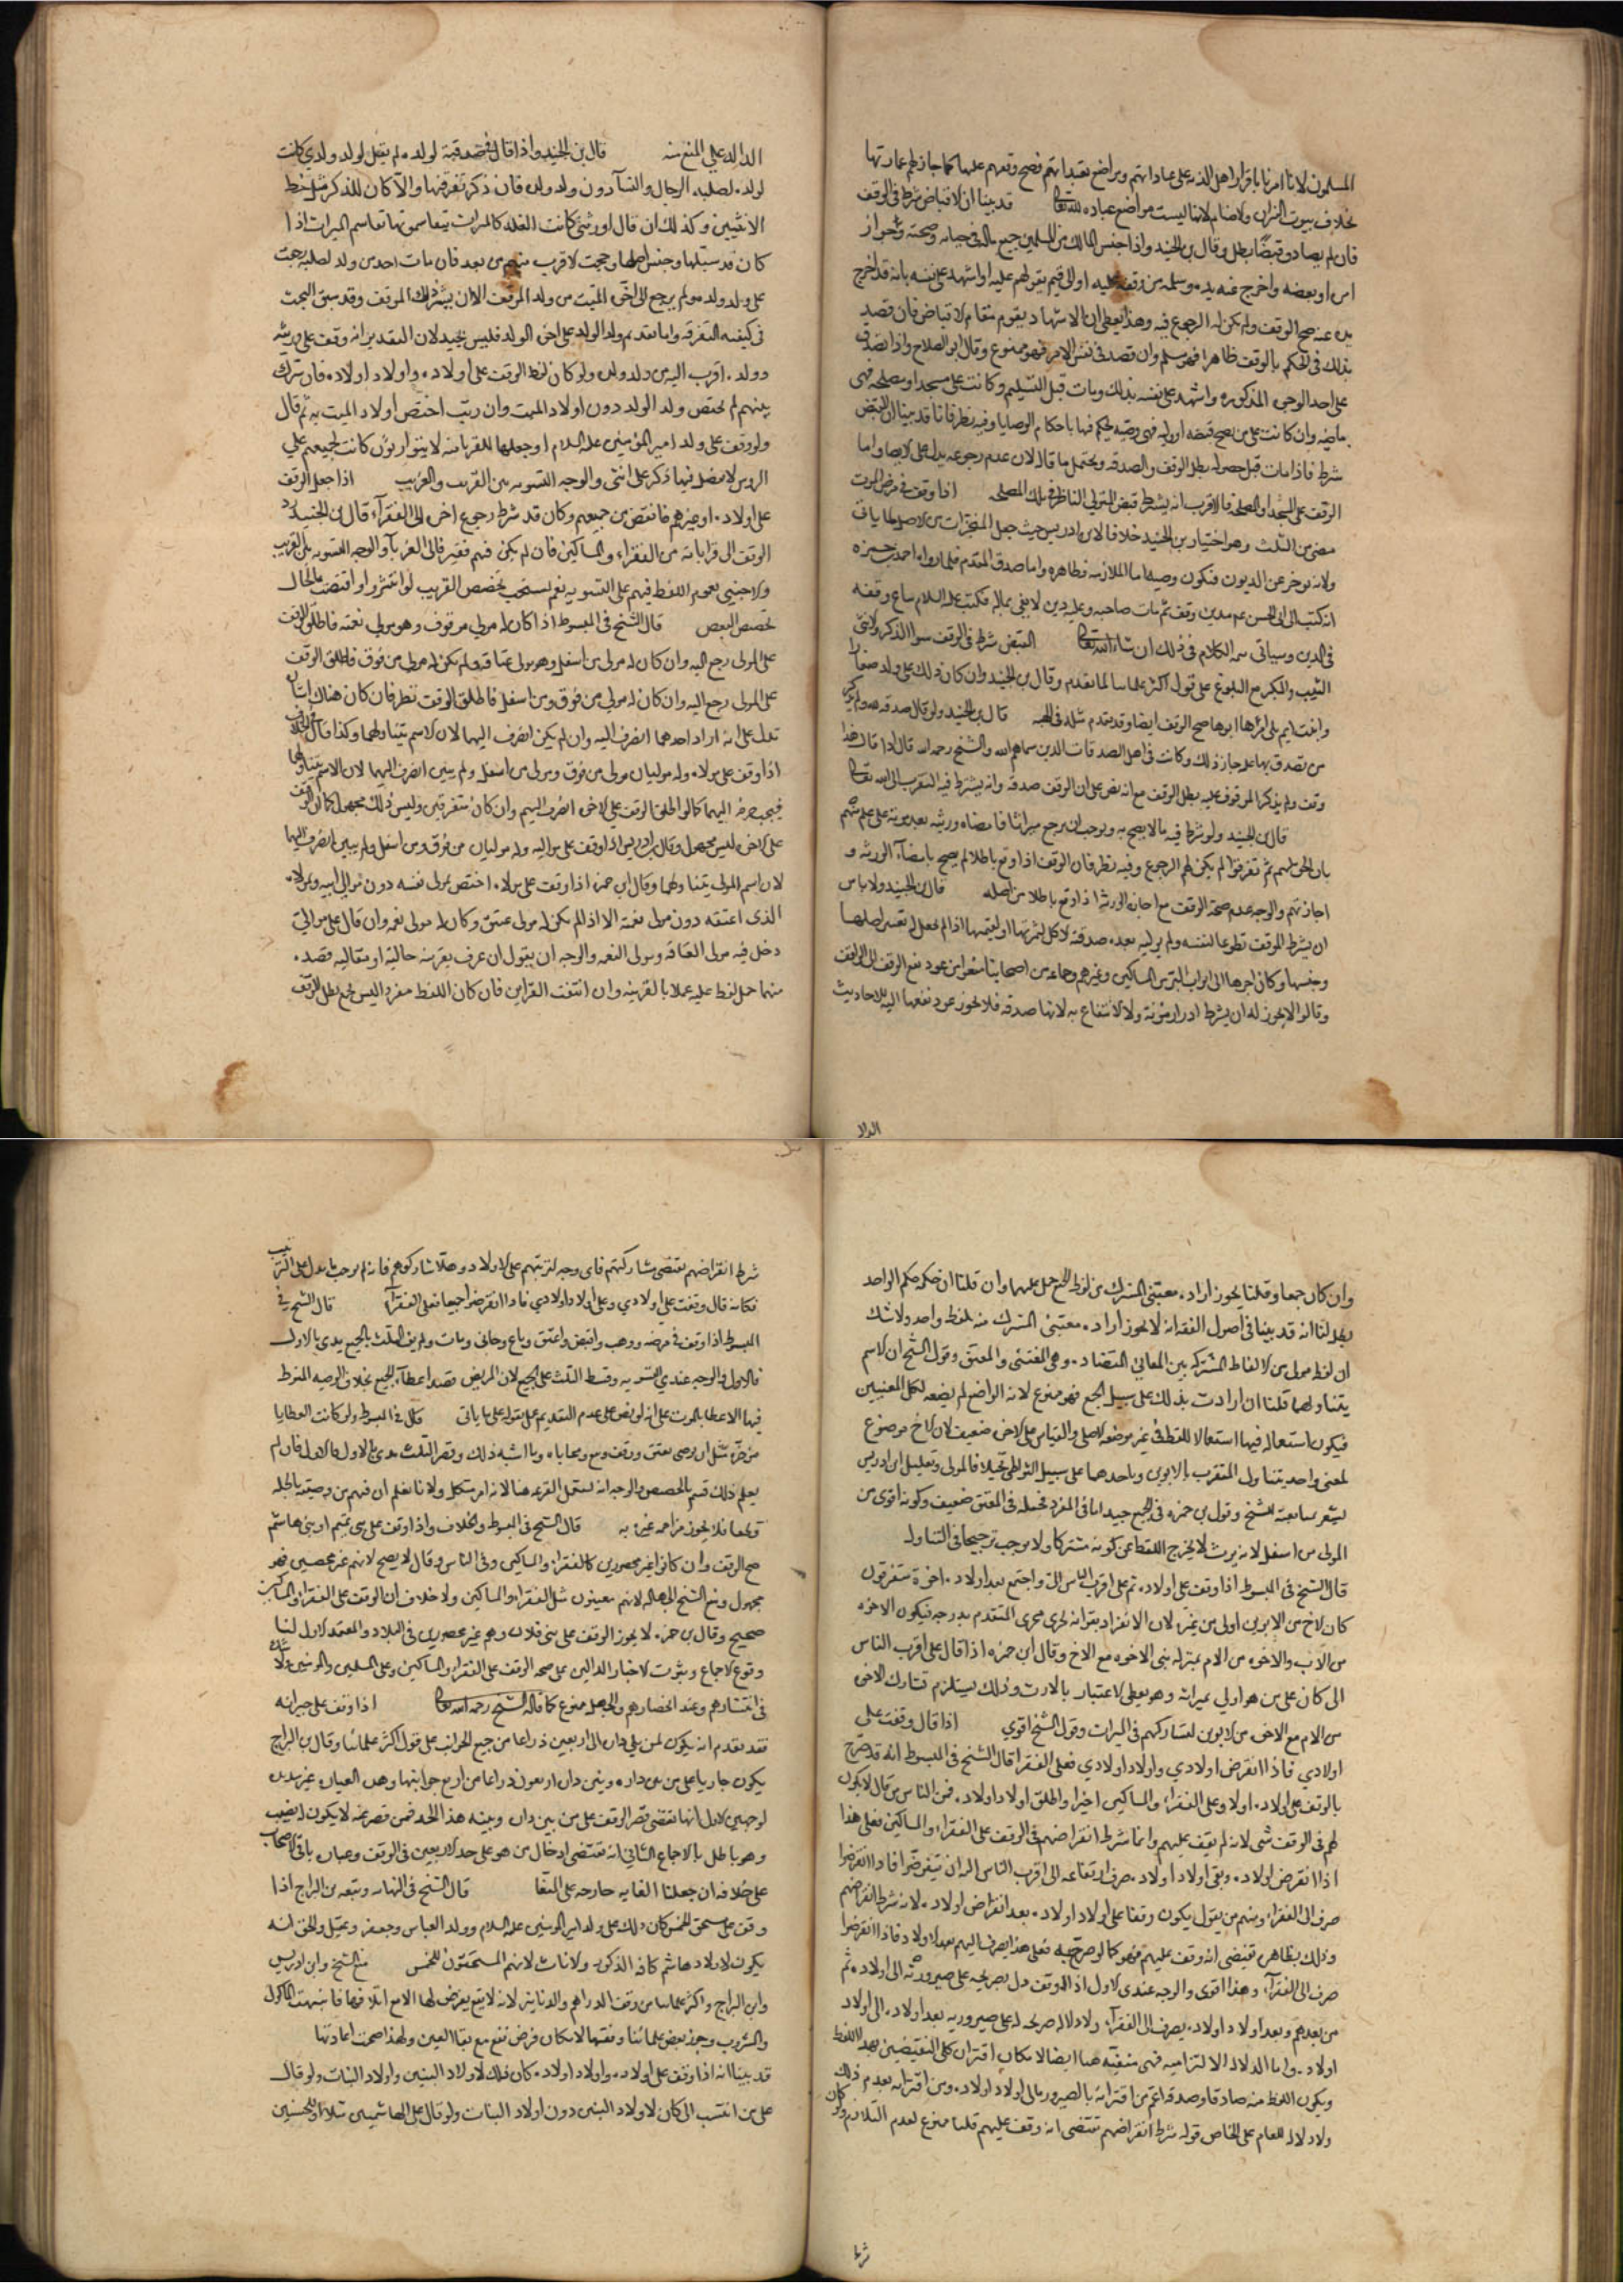 المسلمون لانا امرنا باقرار اهل الذمة على عباداتهم ومواضع تعبداتهم فصح وقفهم عليها كما جاز لهم عمارتها
بخلاف بيوت النيران والاصنام لانها ليست مواضع عبادة لله تعالى قد بينا ان الاقباض شرط في الوقف
فان لم يصادف قبضا بطل وقال بن الجنيد واذا حبس المالك من المسلمين جميع ماله في حياته وصحته وجواز
امره او بعضه واخرج عنه يده وسلمه من وقفه عليه او الى قيم يقوم لهم عليه او اشهد على نفسه بانه قد اخرج
يده عنه صح الوقف ولم يكن له الرجوع فيه وهذا يعطي ان الاشهاد يقوم مقام الاقباض فان قصد
بذلك في الحكم بالوقف ظاهرا فهو مسلم وان قصد في نفس الامر فهو ممنوع وقال ابو الصلاح واذا تصدق
على احد الوجوه المذكورة واشهد على نفسه بذلك ومات قبل التسليم وكانت على مسجد او مصلحة فهي
ماضية وان كانت على من يصح قبضه او وليه فهي وصية يحكم فيها باحكام الوصايا وفيه نظر فانا قد بينا ان القبض
شرط فاذا مات قبل حصوله بطل الوقف والصدقة ويحتمل ما قاله لان عدم رجوعه يدل على الايصاء واما
الوقف على المسجد او المصلحة فالاقرب انه يشترط قبض المتولي الناظر في تلك المصلحة اذا وقف في مرض الموت
مضى من الثلث وهو اختيار بن الجنيد خلافا لابن ادريس حيث جعل المنجزات من الاصل لما ياتي
ولانه يوخر عن الديون فتكون وصية اما الملازمة فظاهرة واما صدق المقدم فلما رواه احمد بن حمزة
انه كتب الى ابي الحسن عم مدين وقف ثم مات صاحبه وعليه دين لا يفي بماله فكتب عليه السلام يباع وقفه
في الدين وسياتي تتمة الكلام في ذلك ان شاء الله تعالى القبض شرط في الوقف سوا الذكر والانثى
الثيب والبكر مع البلوغ على قول اكثر علمائنا لما تقدم وقال بن الجنيد وان كان ذلك على ولد صغار
وابنة ايم يلي امرها ابوها صح الوقف ايضا وقد تقدم مثله في الهبة قال بن الجنيد ولو قال صدقة لله ولم يذكر
من تصدق بها عليه جاز ذلك وكانت في اهل الصدقات الذين سماهم الله والشيخ رحمه الله قال اذا قال هذا
وقف ولم يذكر الموقوف عليه بطل الوقف مع انه نص على ان الوقف صدقة وانه يشترط فيه التقرب الى الله تعالى
قال بن الجنيد ولو شرط فيه ما لا يصح به ويوجب ان يرجع ميراثا فامضاه ورثته بعد موته على علم منهم
بان الحق لهم ثم تعرفوا لم يكن لهم الرجوع وفيه نظر فان الوقف اذا وقع باطلا لم يصح بامضاء الورثة و
اجازتهم والوجه عدم صحة الوقف مع اجازة الورثة اذا وقع باطلا من اصله قال بن الجنيد ولا باس
ان يشرط الموقف تطوعا لنفسه ولم يوليه بعده صدقة الاكل لثمرتها او لقيمتها اذا لم يجعل له تغيير اصلها
وحبسها وكان اجرها الى ابواب البر من المساكين وغيرهم وجماعة من اصحابنا منعوا من عود نفع الوقف الى الواقف
وقالوا لا يجوز له ان يشترط ادرار مؤنة ولا الانتفاع به لانها صدقة فلا يجوز عود نفعها اليه للاحاديث
الداله
الداله على المنع منه قال بن الجنيد واذا قال في صدقة لولده ولم يقل لولد ولدي كانت
لولده لصلبه الرجال والنسآ دون ولد ولده فان ذكر تفرقتها والا كان للذكر مثل حظ
الانثيين وكذلك ان قال لورثتي كانت الغلة كالميراث يتقاسمونها تقاسم الميراث اذا
كان قد سبلها وحبس اصلها ورجعت لاقرب منهم من بعد فان مات احد من ولد لصلبه رجعت
على ولد ولده ولم يرجع الى اخي الميت من ولد الموقف الا ان يشترط ذلك الموقف وقد سبق البحث
في كيفية التفرقة واما تقديم ولد الولد على اخي الولد فليس بجيد لان التقدير انه وقف على ورثته
وولده اقرب اليه من ولد ولده ولو كان لفظ الوقف على اولاده واولاد اولاده فان شرك
بينهم لم يختص ولد الولد دون اولاد الميت وان رتب اختص اولاد الميت به ثم قال
ولو وقف على ولد امير المؤمنين عليه السلام او جعلها للقرابة لا يتوارثون كانت لجميعهم على
الروس لا يفضل فيها ذكر على انثى والوجه التسوية بين القريب والغريب اذا جعل الوقف
على اولاده او غيرهم فانقرض من جميعهم وكان قد شرط رجوع اخر الى الفقرآء قال بن الجنيد رد
الوقف الى قراباته من الفقراء والمساكين فان لم يكن فيهم فقير فالى الغربآء والوجه التسوية بين القريب
والاجنبي بعموم اللفظ فيهم على التسوية نعم يستحب تخصص القريب لو انتشروا واقتضت الحال
تخصص البعض قال الشيخ في المبسوط اذا كان له مولى موقوف وهو مولى نعمته فاطلق الوقف
على المولى رجع اليه وان كان له مولى من اسفل وهو مولى عتاقه ولم يكن له مولى من فوق فاطلق الوقف
على المولى رجع اليه وان كان له مولى من فوق ومن اسفل فاطلق الوقف نظر فان كان هناك امارة
تدل على انه اراد احدهما انصرف اليه وان لم يكن انصرف اليهما لان الاسم يتناولهما وكذا قال في الخلاف
اذا وقف على مولاه وله موليان مولى من فوق ومولى من اسفل ولم يبين انصرف اليهما لان الاسم يتناولهما
فيجب صرفه اليهما كما لو اطلق الوقف على الاخوة انصرف اليهم وان كانوا متفرقين وليس ذلك مجهولا كما ان الوقف
على الاخوة ليس مجهول وقال بن ادريس اذا وقف على مواليه وله موليان من فوق ومن اسفل ولم يبين انصرف اليهما
لان اسم المولى يتناولهما وقال ابن حمزة اذا وقف على مولاه اختص بمولى نفسه دون موالى ابيه ومولاه
الذي اعتقه دون مولى نعمته الا اذا لم يكن له مولى عتق وكان له مولى نعمة وان قال على موالي
دخل فيه مولى العتاقة ومولى النعمة والوجه ان يقول ان عرف بقرينة حالية او مقالية قصده
منهما حمل لفظ عليه عملا بالقرينة وان انتفت القراين فان كان اللفظ مفردا ليس بجمع بطل الوقف
وان كان جمعا وقلنا يجوز اراده معنيي المشترك من لفظ الجمع حمل عليهما وان قلنا ان حكمه حكم الواحد
بطل لنا انه قد بينا في اصول الفقه انه لا يجوز اراده معنيي المشترك منه بلفظ واحد ولا شك
ان لفظ مولى من الالفاظ المشتركة بين المعاني المتضادة وهي المعتق والمعتق وقول الشيخ ان الاسم
يتناولهما قلنا ان اردت بذلك على سبيل الجمع فهو ممنوع لانه الواضع لم يضعه لكل المعنيين
فيكون استعماله فيها استعمالا للفظ في غير موضعه الاصلي والقياس على الاخوة ضعيف لان الاخ موضوع
لمعنى واحد يتناول المتقرب بالابوين وباحدهما على سبيل التواطي بخلاف المولى وتعليل ابن ادريس
ليشعر بمتابعة الشيخ وقول بن حمزة في الجمع جيد اما في المفرد فحمله في المعتق ضعيف وكونه اقوى من
المولى من اسفل لانه يرث لا يخرج اللفظ عن كونه مشتركا ولا يوجب ترجيحا في التناول
قال الشيخ في المبسوط اذا وقف على اولاده ثم على اقرب الناس اليه واجتمع بعد اولاده اخوة متفرقون
كان الاخ من الابوين اولى من غيره لان الانفراد بقرابة يجري مجرى المتقدم بدرجة فيكون الاخوة
من الاب والاخوة من الام بمنزلة بني الاخوة مع الاخ وقال ابن حمزة اذا قال على اقرب الناس
الي كان على من هو اولى بميراثه وهو يعطي الاعتبار بالارث وذلك يستلزم تشارك الاخوة
من الام مع الاخوة من الابوين لتشاركهم في الميراث وقول الشيخ اقوى اذا قال وقفت على
اولادي فاذا انقرض اولادي واولاد اولادي فعلى الفقرا قال الشيخ في المبسوط انه قد صرح
بالوقف على اولاده اولا وعلى الفقراء والمساكين اخيرا واطلق اولاد اولاده فمن الناس من قال لا يكون
لهم في الوقف شي لانه لم يقف عليهم وانما شرط انقراضهم في الوقف على الفقراء والمساكين فعلى هذا
اذا انقرض اولاده وبقي اولاد اولاده صرف ارتفاعه الى اقرب الناس اليه الى ان ينقرضوا فاذا انقرضوا
صرف الى الفقراء ومنهم من يقول يكون وقفا على اولاد اولاده بعد انقراض اولاده لانه شرط انقراضهم
وذلك بظاهره يقتضي انه وقف عليهم فهو كما لو صرح به فعلى هذا يصرف اليهم بعد الاولاد فاذا انقرضوا
صرف الى الفقرآء وهذا اقوى والوجه عندي الاول اذ الوقف دل بصريحه على صيرورته الى اولاده ثم
من بعدهم وبعد اولاد اولاده يصرف الى الفقرآء ولا دلالة صريحة له على صيروريه بعد اولاده الى اولاد
اولاده واما الدلالة الالتزامية فهي منفية هنا ايضا لامكان اقتران كلى النقيضين بهذا اللفظ
ويكون اللفظ منه صادقا وصدقه اعم من اقترانه بالصيرورة الى اولاد اولاده ومن اقترانه بعدم ذلك
ولا دلالة للعام على الخاص قوله شرط انقراضهم يقتضي انه وقف عليهم قلنا ممنوع لعدم التلازم ولو كان
شرط
شرط انقراضهم يقتضي مشاركتهم فاي وجه لترتبهم على الاولاد وهلا شاركوهم فانه لم يوجد ما يدل على الترتيب
فكانه قال وقفت على اولادي وعلى اولاد اولادي فاذا انقرضوا جميعا فعلى الفقرآء قال الشيخ في
المبسوط اذا وقف في مرضه ووهب واقبض واعتق وباع وحابى ومات ولم يف الثلث بالجميع بدي بالاول
فالاول والوجه عندي التسوية وقسط الثلث على الجميع لان المريض قصد اعطآء الجميع بخلاف الوصية المفرط
فيها الاعطا بالموت على انه لو نص على عدم التقديم عمل بقوله على ما ياتي قال في المبسوط ولو كانت العطايا
مؤخرة مثل ان يوصي بعتق ووقف وبيع ومحاباة وما اشبه ذلك وقصر الثلث بدي بالاول فالاول فان لم
يعلم ذلك قسم بالحصص والوجه انه تستعمل القرعة هنا لانه امر مشكل ولانا نعلم ان فيهم من وصيته باطلة
قطعا فلا يجوز مزاحمة غيره به قال الشيخ في المبسوط والخلاف واذا وقف على بني تميم او بني هاشم
صح الوقف وان كانوا غير محصورين كالفقراء والمساكين وفي الناس من قال لا يصح لانهم غير محصين فهو
مجهول ومنع الشيخ الجهالة لانهم معينون مثل الفقراء والمساكين ولا خلاف ان الوقف على الفقراء والمساكين
صحيح وقال بن حمزة لا يجوز الوقف على بني فلان وهم غير محصورين في البلاد والمعتمد الاول لنا
وقوع الاجماع وثبوت الاخبار الدالين على صحة الوقف على الفقراء والمساكين وعلى المسلمين والمومنين مثلا
في انتشارهم وعند انحصارهم والجهل ممنوع كما قاله الشيخ رحمه الله تعالى اذا وقف على جيرانه
فقد تقدم انه يكون لمن يلي داره الى اربعين ذراعا من جميع الجوانب على قول اكثر علمائنا وقال بن البراج
يكون جاريا على من بين داره وبين دار اربعون ذراعا من اربع جوانبها وهذه العبارة غير سديدة
لوجهين الاول انها تقتضي قصر الوقف على من بين داره وبينه هذا الحد فمن قصر عنه لا يكون له نصيب
وهو باطل بالاجماع الثاني انه تقتضي ادخال من هو على حد الاربعين في الوقف وعبارة باقي الاصحاب
على خلافه ان جعلنا الغاية خارجة على التقا قال الشيخ في النهاية وتبعه بن البراج اذا
وقف على مستحق الخمس كان ذلك على ولد امير المومنين عليه السلام وولد العباس وجعفر وعقيل والحق انه
يكون لاولاد هاشم كافة الذكور والاناث لانهم المستحقون للخمس منع الشيخ وابن ادريس
وابن البراج واكثر علمائنا من وقف الدراهم والدنانير لانه لا يقع بغرض لها الا مع اتلافها فاشبهت الماكول
والمشروب وجوزه بعض علمائنا وفقهها لامكان فرض نفع مع بقا العين ولهذا صحت اعارتها
قد بينا انه اذا وقف على اولاده واولاد اولاده كان ذلك لاولاد البنين واولاد البنات ولو قال
على من انتسب الي كان لاولاد البنين دون اولاد البنات ولو قال على الهاشميين مثلا او الحسنيين